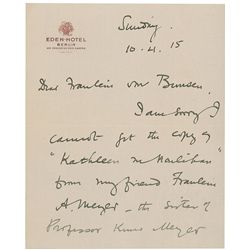 EDEN-HOTEL
BERLIN
Sunday.
10. 4. 15
Dear Fraulein von Bunsen,
I am sorry I
cannot get the copy of
"Kathleen ni Houlihan"
from my friend Fraulein
A. Meyer – the sister of
Professor Kuno Meyer